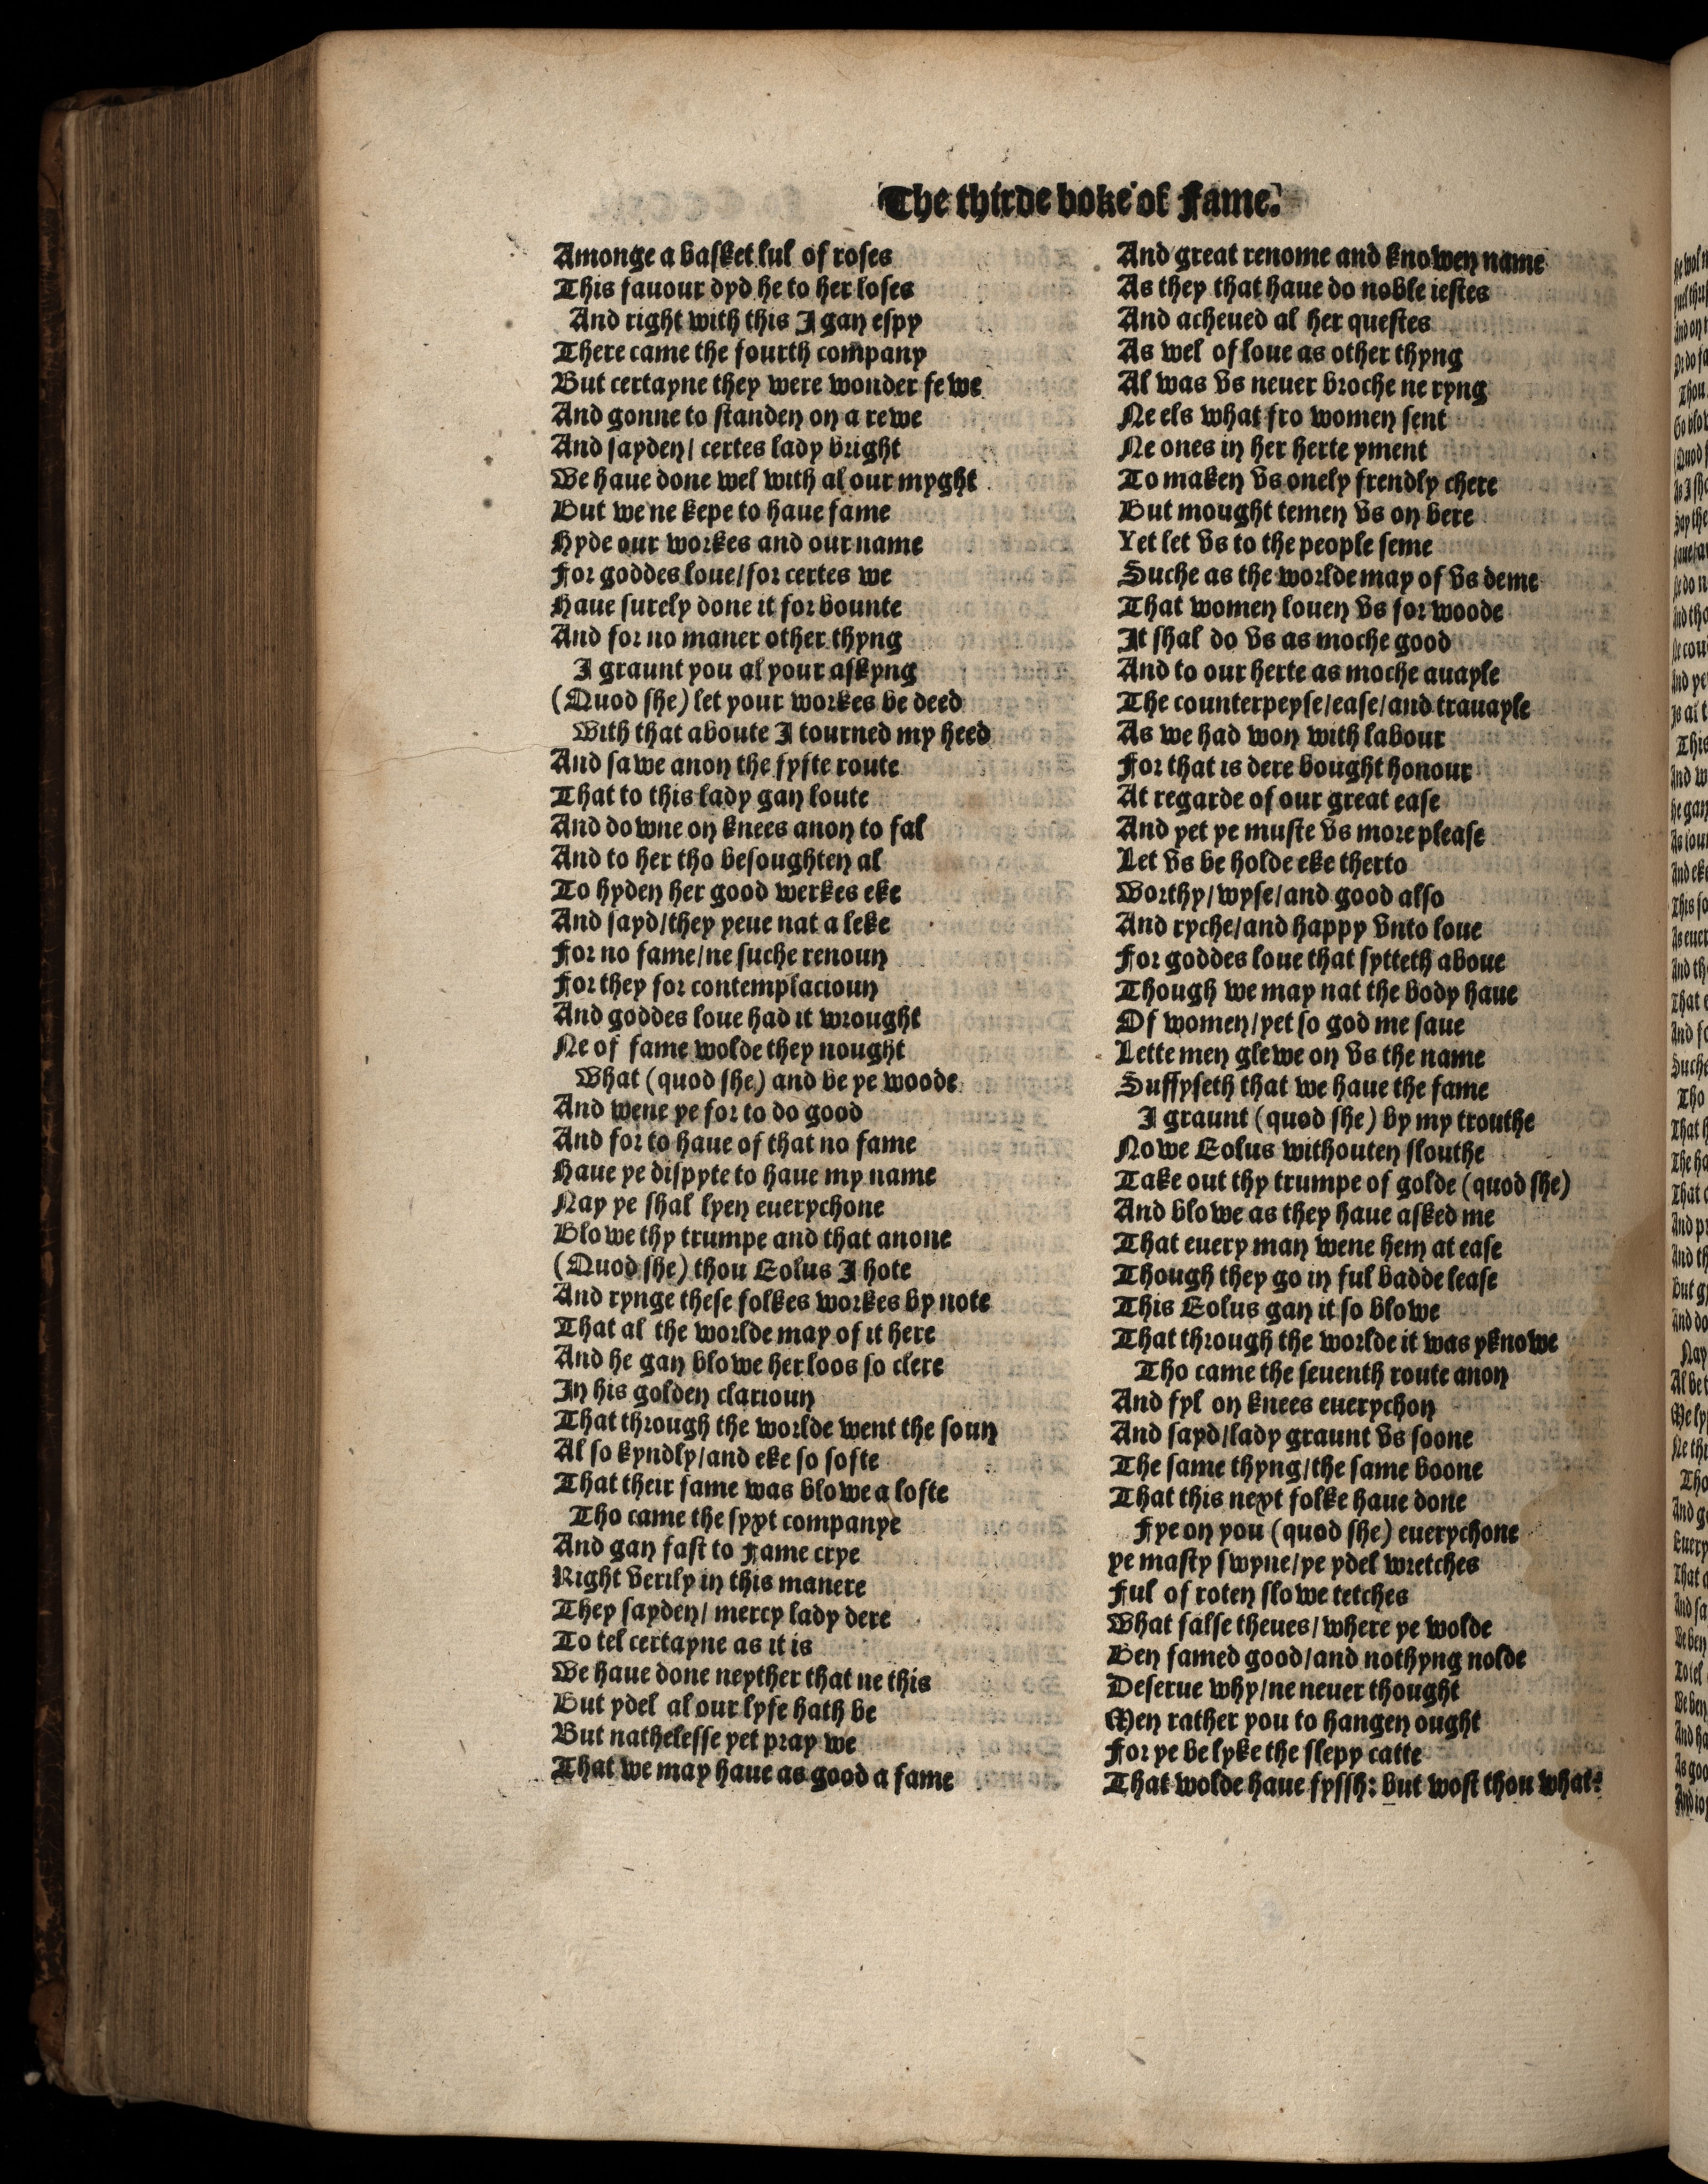 The thirde boke of Fame.
Amonge a basket ful of roses
This fauour dyd he to her loses
And right with this I gan espy
There came the fourth company
But certayne they were wonder fewe
And gonne to standen on a rewe
And sayden/ certes lady bright
We haue done wel with al our myght
But we ne kepe to haue fame
Hyde our workes and our name
For goddes loue/for certes we
Haue surely done it for bounte
And for no maner other thyng
I graunt you al your askyng
(Quod she) let your workes be deed
With that aboute I tourned my heed
And sawe anon the fyfte route
That to this lady gan loute
And downe on knees anon to fal
And to her tho besoughten al
To hyden her good werkes eke
And sayd/they yeue nat a leke
For no fame/ne suche renoun
For they for contemplacioun
And goddes loue had it wrought
Ne of fame wolde they nought
What (quod she) and be ye woode
And wene ye for to do good
And for to haue of that no fame
Haue ye dispyte to haue my name
Nay ye shal lyen euerychone
Blowe thy trumpe and that anone
(Quod she) thou Eolus I hote
And rynge these folkes workes by note
That al the worlde may of it here
And he gan blowe her loos so clere
In his golden clarioun
That through the worlde went the soun
Al so kyndly/and eke so softe
That their fame was blowe a lofte
Tho came the syxt companye
And gan fast to Fame crye
Right verily in this manere
They sayden/ mercy lady dere
To tel certayne as it is
We haue done neyther that ne this
But ydel al our lyfe hath be
But nathelesse yet pray we
That we may haue as good a fame
And great renome and knowen name
As they that haue do noble iestes
And acheued al her questes
As wel of loue as other thyng
Al was vs neuer broche ne ryng
Ne els what fro women sent
Ne ones in her herte yment
To maken vs onely frendly chere
But mought temen vs on bere
Yet let vs to the people seme
Suche as the worlde may of vs deme
That women louen vs for woode
It shal do vs as moche good
And to our herte as moche auayle
The counterpeyse/ease/and trauayle
As we had won with labour
For that is dere bought honour
At regarde of our great ease
And yet ye muste vs more please
Let vs be holde eke therto
Worthy/wyse/and good also
And ryche/and happy vnto loue
For goddes loue that sytteth aboue
Though we may nat the body haue
Of women/yet so god me saue
Lette men glewe on vs the name
Suffyseth that we haue the fame
I graunt (quod she) by my trouthe
Nowe Eolus withouten slouthe
Take out thy trumpe of golde (quod she)
And blowe as they haue asked me
That euery man wene hem at ease
Though they go in ful badde lease
This Eolus gan it so blowe
That through the worlde it was yknowe
Tho came the seuenth route anon
And fyl on knees euerychon
And sayd/lady graunt vs soone
The same thyng/the same boone
That this next folke haue done
Fye on you (quod she) euerychone
ye masty swyne/ye ydel wretches
Ful of roten slowe tetches
What false theues/where ye wolde
Ben famed good/and nothyng nolde
Deserue why/ne neuer thought
Men rather you to hangen ought
For ye be lyke the slepy catte
That wolde haue fyssh: but wost thou what?